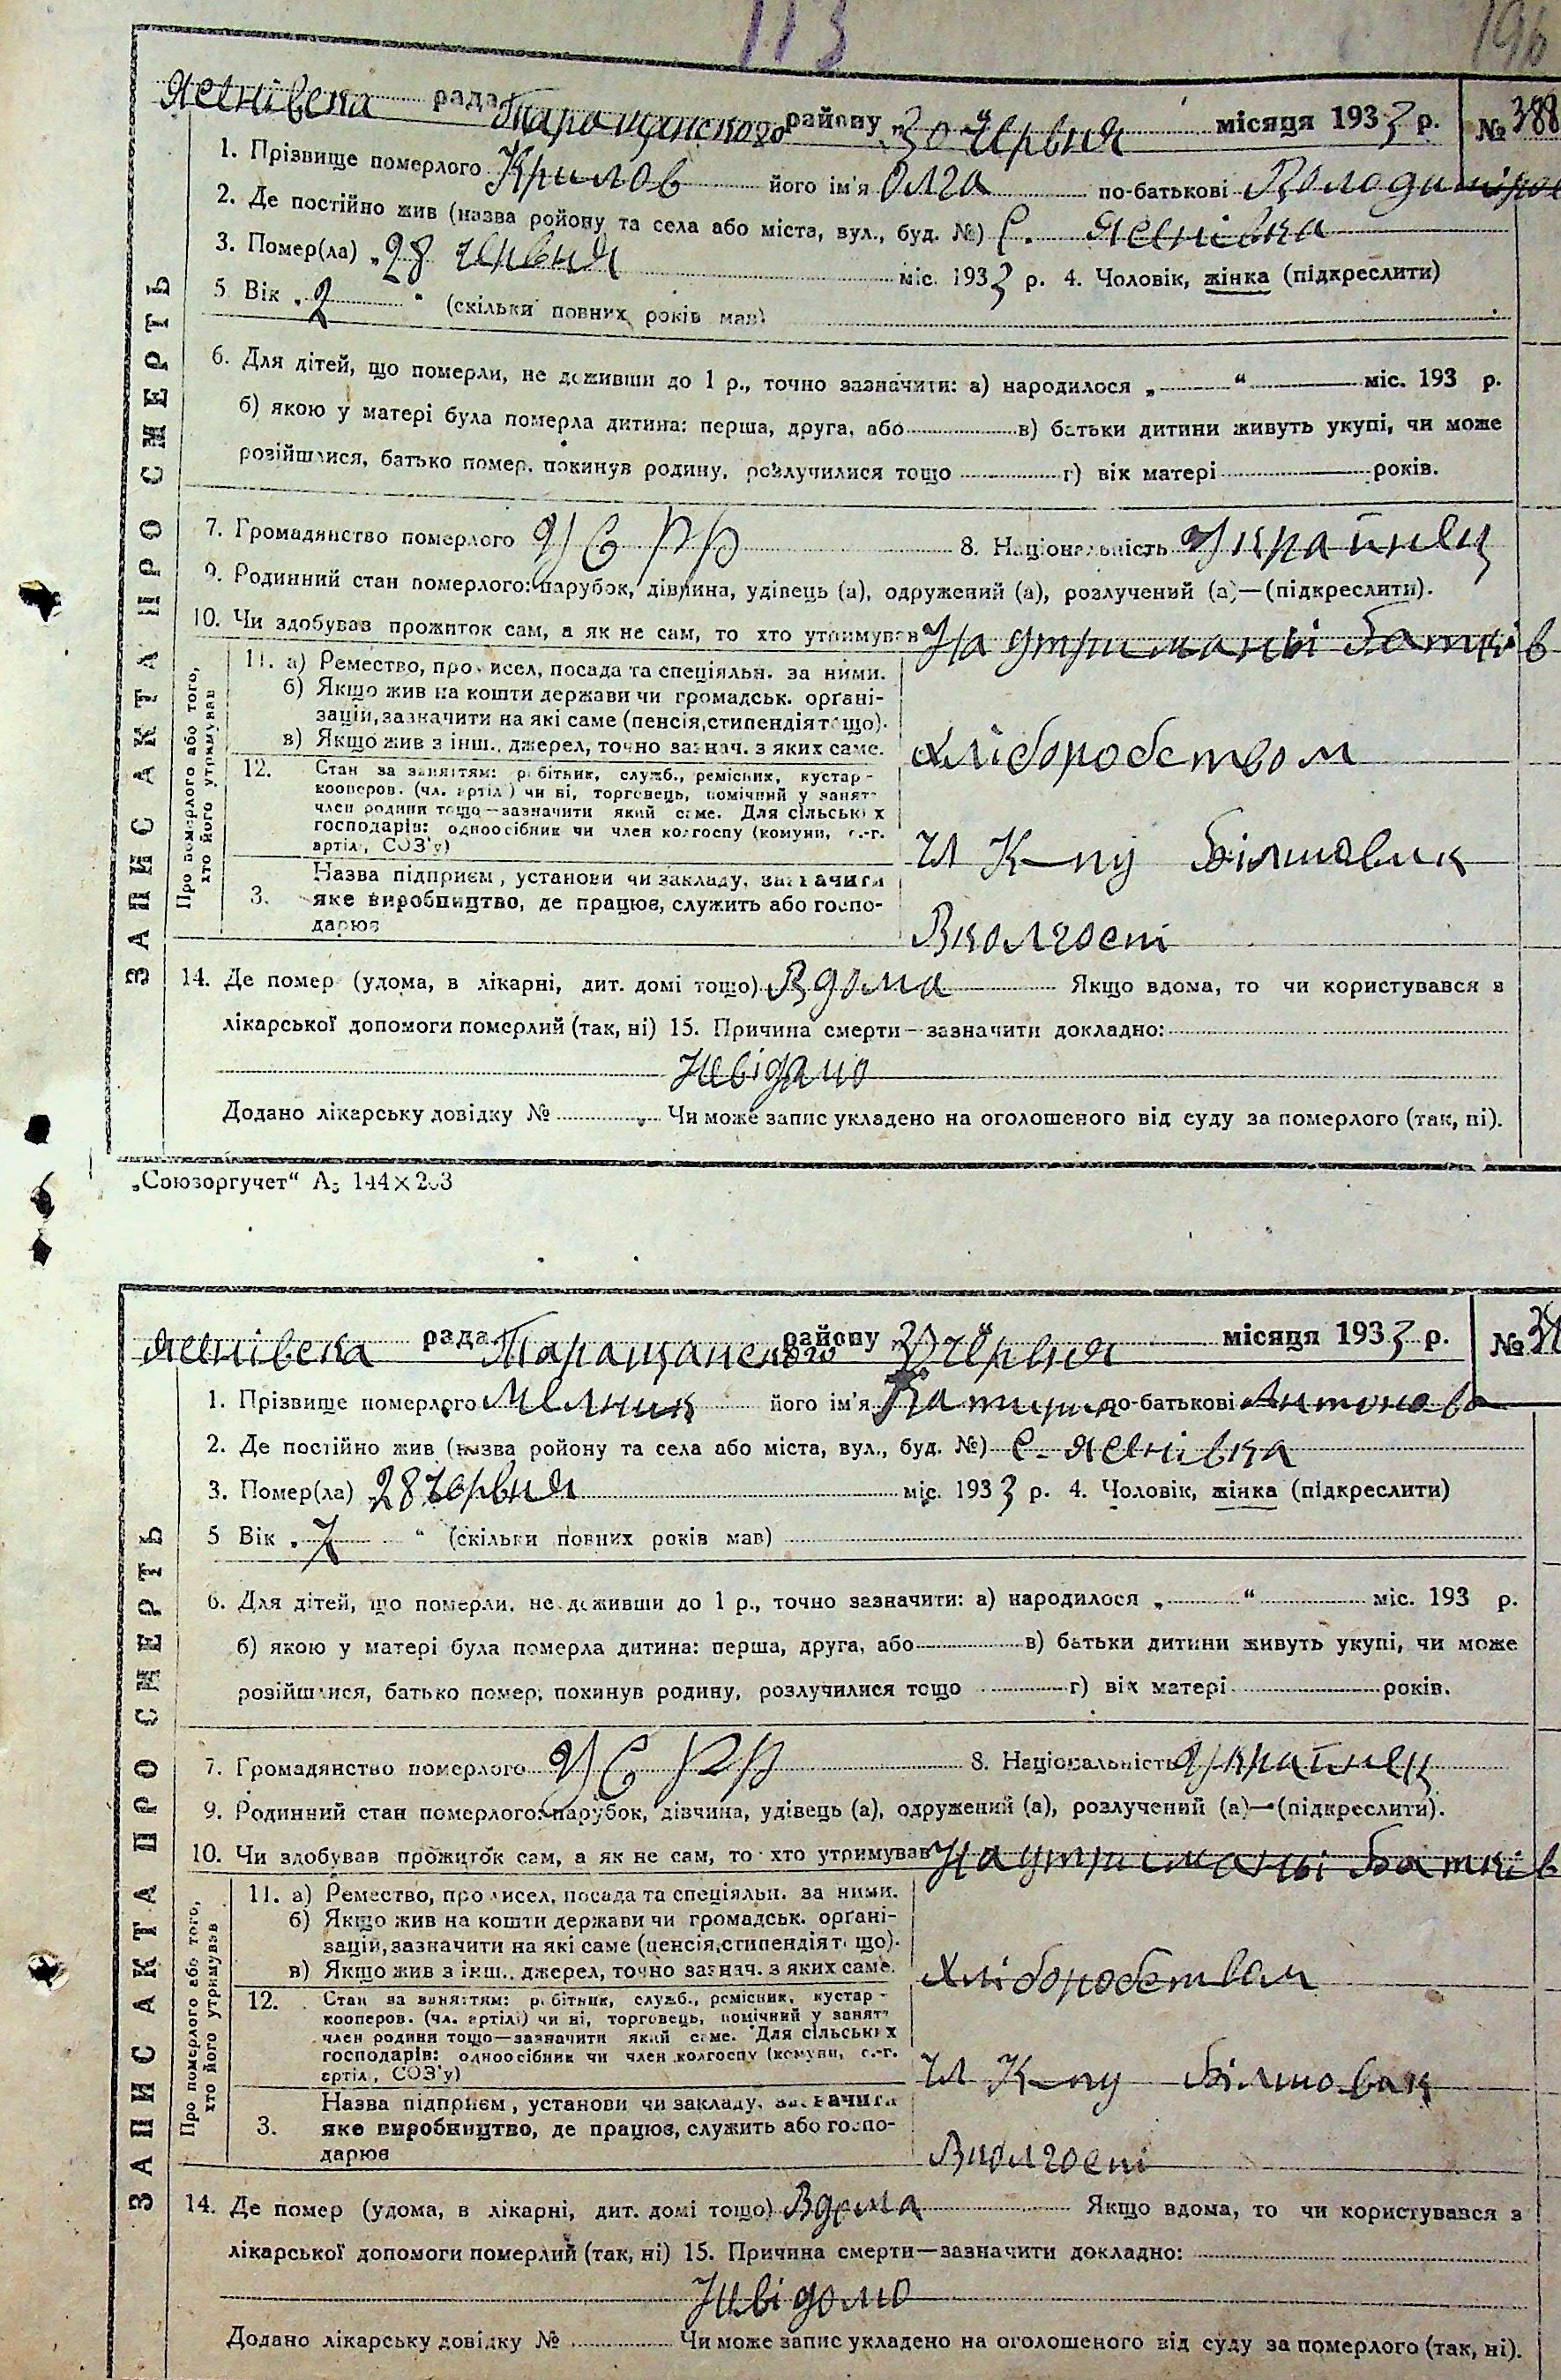 113
196
Яснівска рада Таращанского району „30“ червня місяця 1933 р. № 388
1. Прізвище померлого Крилов його ім'я Олга по-батькові
2. Де постійно жив (назва ройону та села або міста, вул., буд. №) С. Яснівка
3. Помер(ла) „28 червня міс. 1933 р. 4. Чоловік, жінка (підкреслити)
5 Вік „2 “ (скільки повних років мав)
6. Для дітей, що померли, не доживши до 1 р., точно зазначити: а) народилося „ “ міс. 193 р.
б) якою у матері була померла дитина: перша, друга, або в) батьки дитини живуть укупі, чи може
розійшлися, батько помер, покинув родину, розлучилися тощо г) вік матері років.
7. Громадянство померлого УСРР 8. Національність Українец
9. Родинний стан померлого: парубок, дівчина, удівець (а), одружений (а), розлучений (а)—(підкреслити).
10. Чи здобував прожиток сам, а як не сам, то хто утримував На утриманьі батьків
11. а) Ремество, промисел, посада та спеціяльн. за ними.
б) Якщо жив на кошти держави чи громадськ. орґані-
зацій, зазначити на які саме (пенсія, стипендія тощо).
в) Якщо жив з інш., джерел, точно зазнач. з яких саме.
Хліборобством
12. Стан за заняттям: робітник, служб., ремісник, кустар -
кооперов. (чл. артілі) чи ні, торговець, помічний у занятт
член родини тощо—зазначити який саме. Для сільських
господарів: одноосібник чи член колгоспу (комуни, с.-г.
артіл, СОЗ'у)
Чл К-пу Більшовик
Назва підприєм, установи чи закладу, зазначити
3. яке виробництво, де працює, служить або госпо-
дарює
Вколгоспі
14. Де помер (удома, в лікарні, дит. домі тощо) Вдома Якщо вдома, то чи користувався з
лікарської допомоги померлий (так, ні) 15. Причина смерти—зазначити докладно:
Невідомо
Додано лікарську довідку № Чи може запис укладено на оголошеного від суду за померлого (так, ні).
ЗАПИС АКТА ПРО СМЕРТЬ
Про померлого або того,
хто його утримував
„Союзоргучет“ А5 144×203
Яснівска рада Таращанского району „30“ червня місяця 1933 р. №
1. Прізвище померлого Мелник його ім'я по-батькові Антонова
2. Де постійно жив (назва ройону та села або міста, вул., буд. №) С. Яснівка
3. Помер(ла) 28 червня міс. 1933 р. 4. Чоловік, жінка (підкреслити)
5 Вік „7 “ (скільки повних років мав)
6. Для дітей, що померли, не доживши до 1 р., точно зазначити: а) народилося „ “ міс. 193 р.
б) якою у матері була померла дитина: перша, друга, або в) батьки дитини живуть укупі, чи може
розійшлися, батько помер, покинув родину, розлучилися тощо г) вік матері років.
7. Громадянство померлого УСРР 8. Національність Українец
9. Родинний стан померлого: парубок, дівчина, удівець (а), одружений (а), розлучений (а)—(підкреслити).
10. Чи здобував прожиток сам, а як не сам, то хто утримував На утриманьі батьків
11. а) Ремество, промисел, посада та спеціяльн. за ними.
б) Якщо жив на кошти держави чи громадськ. орґані-
зацій, зазначити на які саме (пенсія, стипендія тощо).
в) Якщо жив з інш., джерел, точно зазнач. з яких саме.
Хліборобствам
12. Стан за заняттям: робітник, служб., ремісник, кустар -
кооперов. (чл. артілі) чи ні, торговець, помічний у занятт
член родини тощо—зазначити який саме. Для сільських
господарів: одноосібник чи член колгоспу (комуни, с.-г.
артіл, СОЗ'у)
Чл К-пу
Назва підприєм, установи чи закладу, зазначити
3. яке виробництво, де працює, служить або госпо-
дарює
Вколгоспі
14. Де помер (удома, в лікарні, дит. домі тощо) Вдома Якщо вдома, то чи користувався з
лікарської допомоги померлий (так, ні) 15. Причина смерти—зазначити докладно:
Невідомо
Додано лікарську довідку № Чи може запис укладено на оголошеного від суду за померлого (так, ні).
ЗАПИС АКТА ПРО СМЕРТЬ
Про померлого або того,
хто його утримував